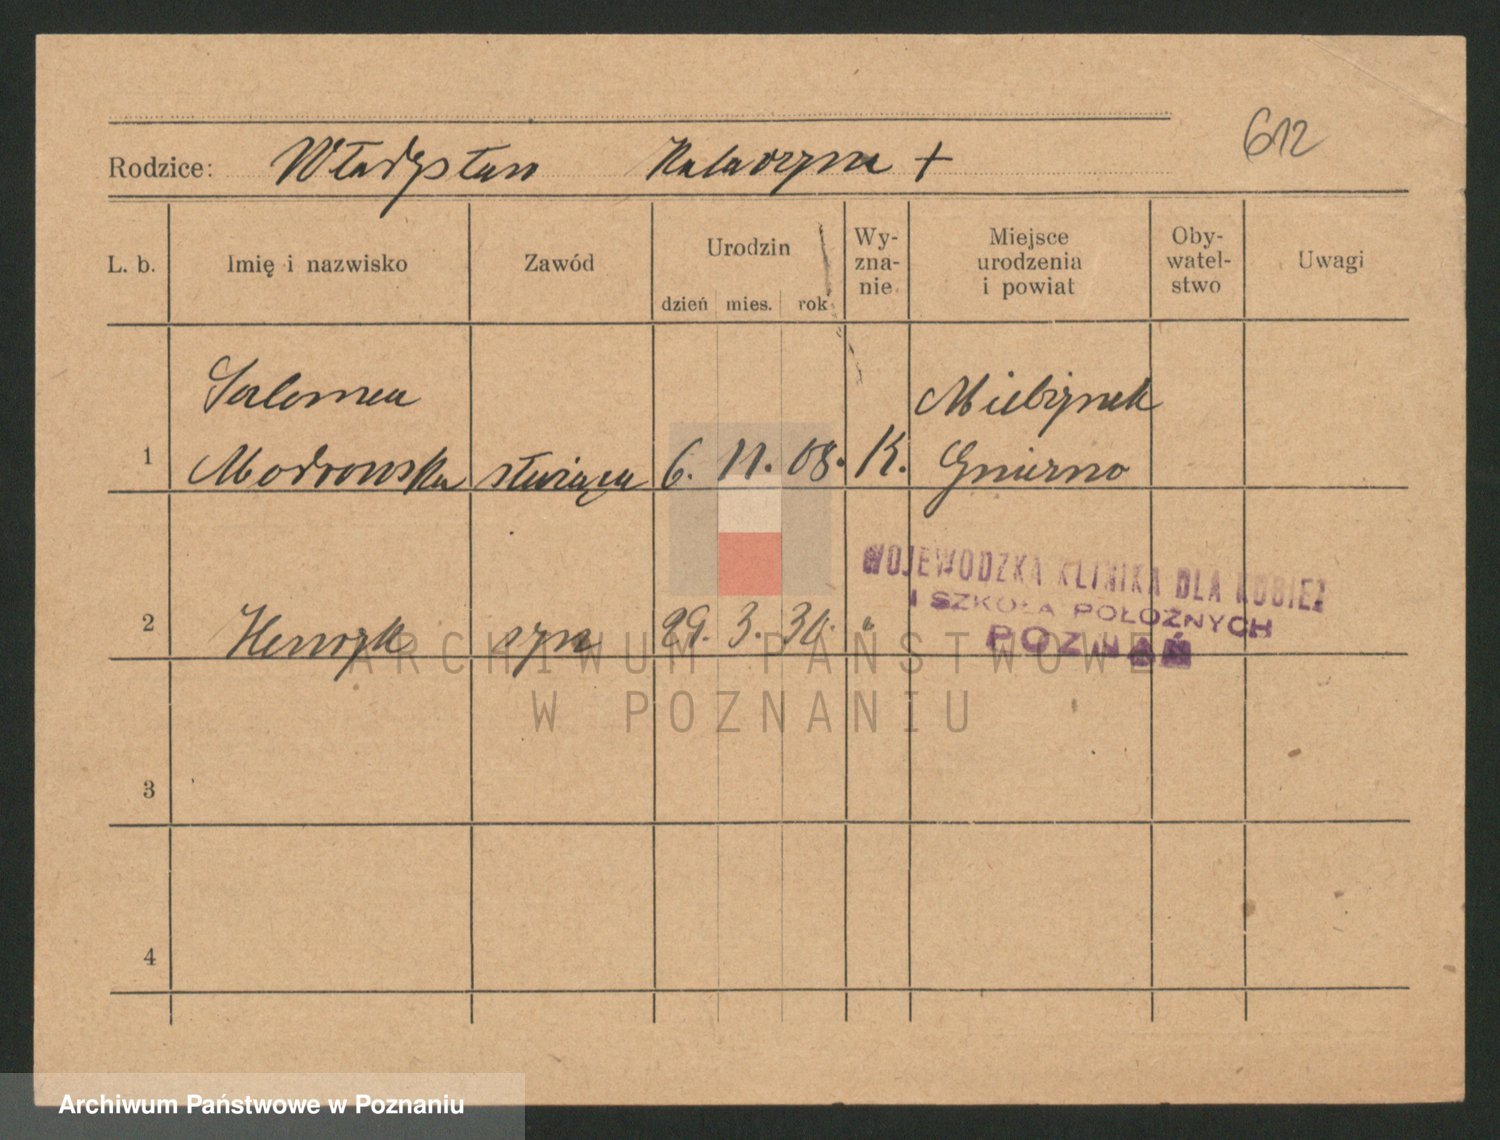 612
Rodzice: Władysław Katarzyna +
L. b. Imię i nazwisko Zawód Urodzin dzień mies. rok Wy-zna-nie Miejsce urodzenia i powiat Oby-watel-stwo Uwagi
Salomea Mielżynek
1 Modrowska służąca 6. 11. 08. K. Gniezno
WOJEWÓDZKA KLINIKA DLA KOBIET
I SZKOŁA POŁOŻNYCH
POZNAŃ
2 Henryk syn 29. 3. 30. "
ARCHIWUM PAŃSTWOWE
W POZNANIU
3
4
Archiwum Państwowe w Poznaniu